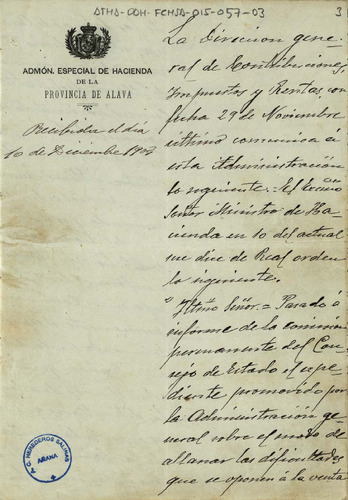 ATHA-DAH-FCHSA-015-057-03
3
ADMÓN. ESPECIAL DE HACIENDA
DE LA
PROVINCIA DE ALAVA
Recibida el día
10 de Diciembre 1903
La Direccion gene-
ral de Contribuciones,
Impuestos y Rentas, con
fecha 29 de Noviembre
último comunica á
esta Administración
lo siguiente. = El Excmo
Señor Ministro de Ha-
cienda en 10 del actual
me dice de Real orden
lo siguiente.
Iltmo Señor. = Pasado á
informe de la comisión
permanente del Con-
sejo de Estado el expe-
diente promovido por
la Administración ge-
neral sobre el modo de
allanar las dificultades
que se oponen á la venta
T. C. HEREDEROS SALINAS
AÑANA